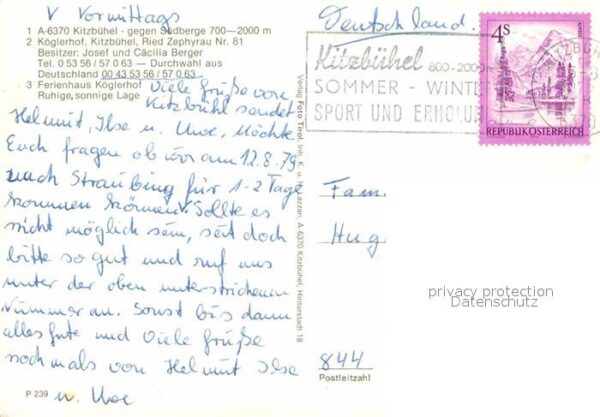 V Vormittags
1 A-6370 Kitzbühel - gegen Südberge 700—2000 m
2 Köglerhof, Kitzbühel, Ried Zephyrau Nr. 81
Besitzer: Josef und Cäcilia Berger
Tel. 0 53 56 / 57 0 63 — Durchwahl aus
Deutschland 00 43 53 56 / 57 0 63
3 Ferienhaus Köglerhof
Ruhige, sonnige Lage
Viele Grüße von
Kitzbühl sendet
Helmut, Ilse u. Uwe, Möchte
Euch fragen ob wir am 12.8.79
nach Straubing für 1-2 Tage
kommen können. Sollte es
nicht möglich sein, seit doch
bitte so gut und ruf uns
unter der oben unterstrichenen
Nummer an. Sonst bis dann
alles Gute und Viele Grüße
nochmals von Helmut Ilse
u. Uwe
P 239
Verlag Foto Tirol, Inh. K. u. H. Lazzari, A-6370 Kitzbühel, Hinterstadt 18
Deutschland.
Kitzbühel
800-2000
SOMMER - WINTER
SPORT UND ERHOLU
4S
REPUBLIK ÖSTERREICH
Fam.
Hug
844
Postleitzahl
privacy protection
Datenschutz